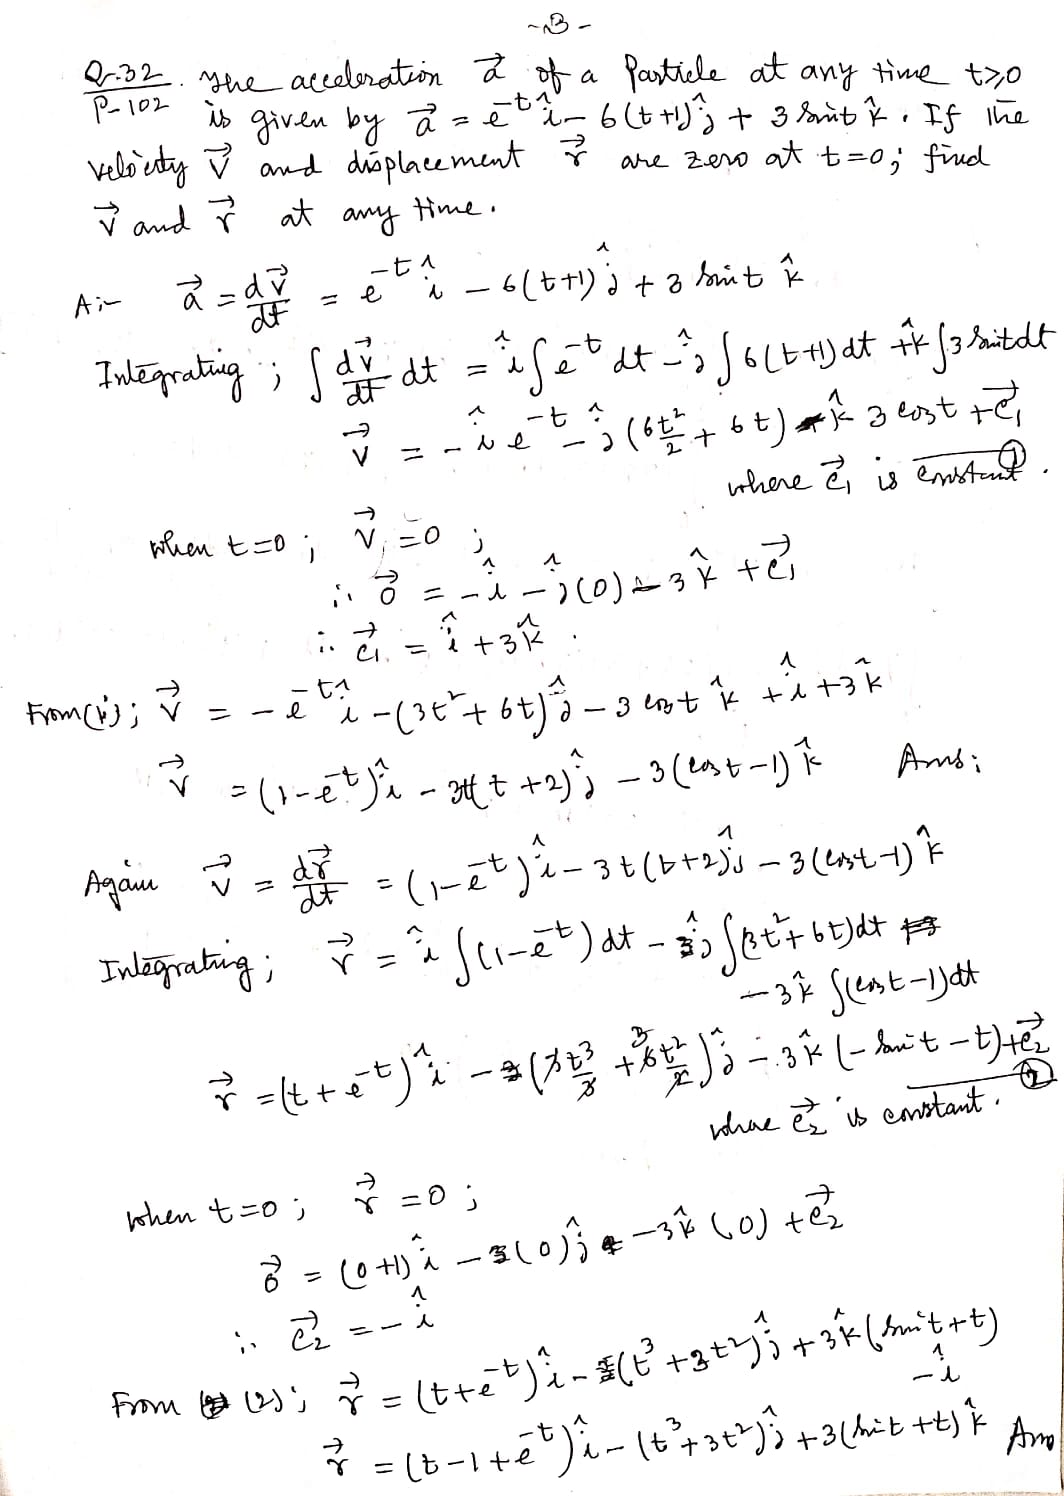 -3-
Q.32 . The acceleration \vec{a} of a Particle at any time t≥0
P-102 is given by \vec{a} = e^{-t} \hat{i} - 6(t+1) \hat{j} + 3 sint \hat{k}. If the
velocity \vec{v} and displacement \vec{r} are zero at t=0; find
\vec{v} and \vec{r} at any time.
A:- \vec{a} = \frac{d\vec{v}}{dt} = e^{-t} \hat{i} - 6(t+1) \hat{j} + 3 sint \hat{k}
Integrating; ∫ \frac{d\vec{v}}{dt} dt = \hat{i} ∫ e^{-t} dt - \hat{j} ∫ 6(t+1) dt + \hat{k} ∫ 3 sint dt
\vec{v} = - \hat{i} e^{-t} - \hat{j} (6\frac{t^2}{2} + 6t) - \hat{k} 3 cost + \vec{c}_1
①
where \vec{c}_1 is constant.
when t=0 ; \vec{v} = 0 ;
∴ \vec{0} = - \hat{i} - \hat{j}(0) - 3 \hat{k} + \vec{c}_1
∴ \vec{c}_1 = \hat{i} + 3\hat{k}
From(1); \vec{v} = - e^{-t} \hat{i} - (3t^2 + 6t) \hat{j} - 3 cost \hat{k} + \hat{i} + 3\hat{k}
\vec{v} = (1-e^{-t}) \hat{i} - 3t(t+2) \hat{j} - 3(cost-1) \hat{k} Ans;
Again \vec{v} = \frac{d\vec{r}}{dt} = (1-e^{-t}) \hat{i} - 3t(t+2) \hat{j} - 3(cost-1) \hat{k}
Integrating; \vec{r} = \hat{i} ∫(1-e^{-t}) dt - \hat{j} ∫(3t^2+6t) dt
- 3\hat{k} ∫(cost-1) dt
\vec{r} = (t+e^{-t}) \hat{i} - (3\frac{t^3}{3} + 6\frac{t^2}{2}) \hat{j} - 3\hat{k} (-sint-t) + \vec{c}_2
②
where \vec{c}_2 is constant.
when t=0 ; \vec{r} = 0 ;
\vec{0} = (0+1) \hat{i} - (0) \hat{j} - 3\hat{k} (0) + \vec{c}_2
∴ \vec{c}_2 = - \hat{i}
From (2); \vec{r} = (t+e^{-t}) \hat{i} - (t^3+3t^2) \hat{j} + 3\hat{k} (sint+t)
- \hat{i}
\vec{r} = (t-1+e^{-t}) \hat{i} - (t^3+3t^2) \hat{j} + 3(sint+t) \hat{k} Ans